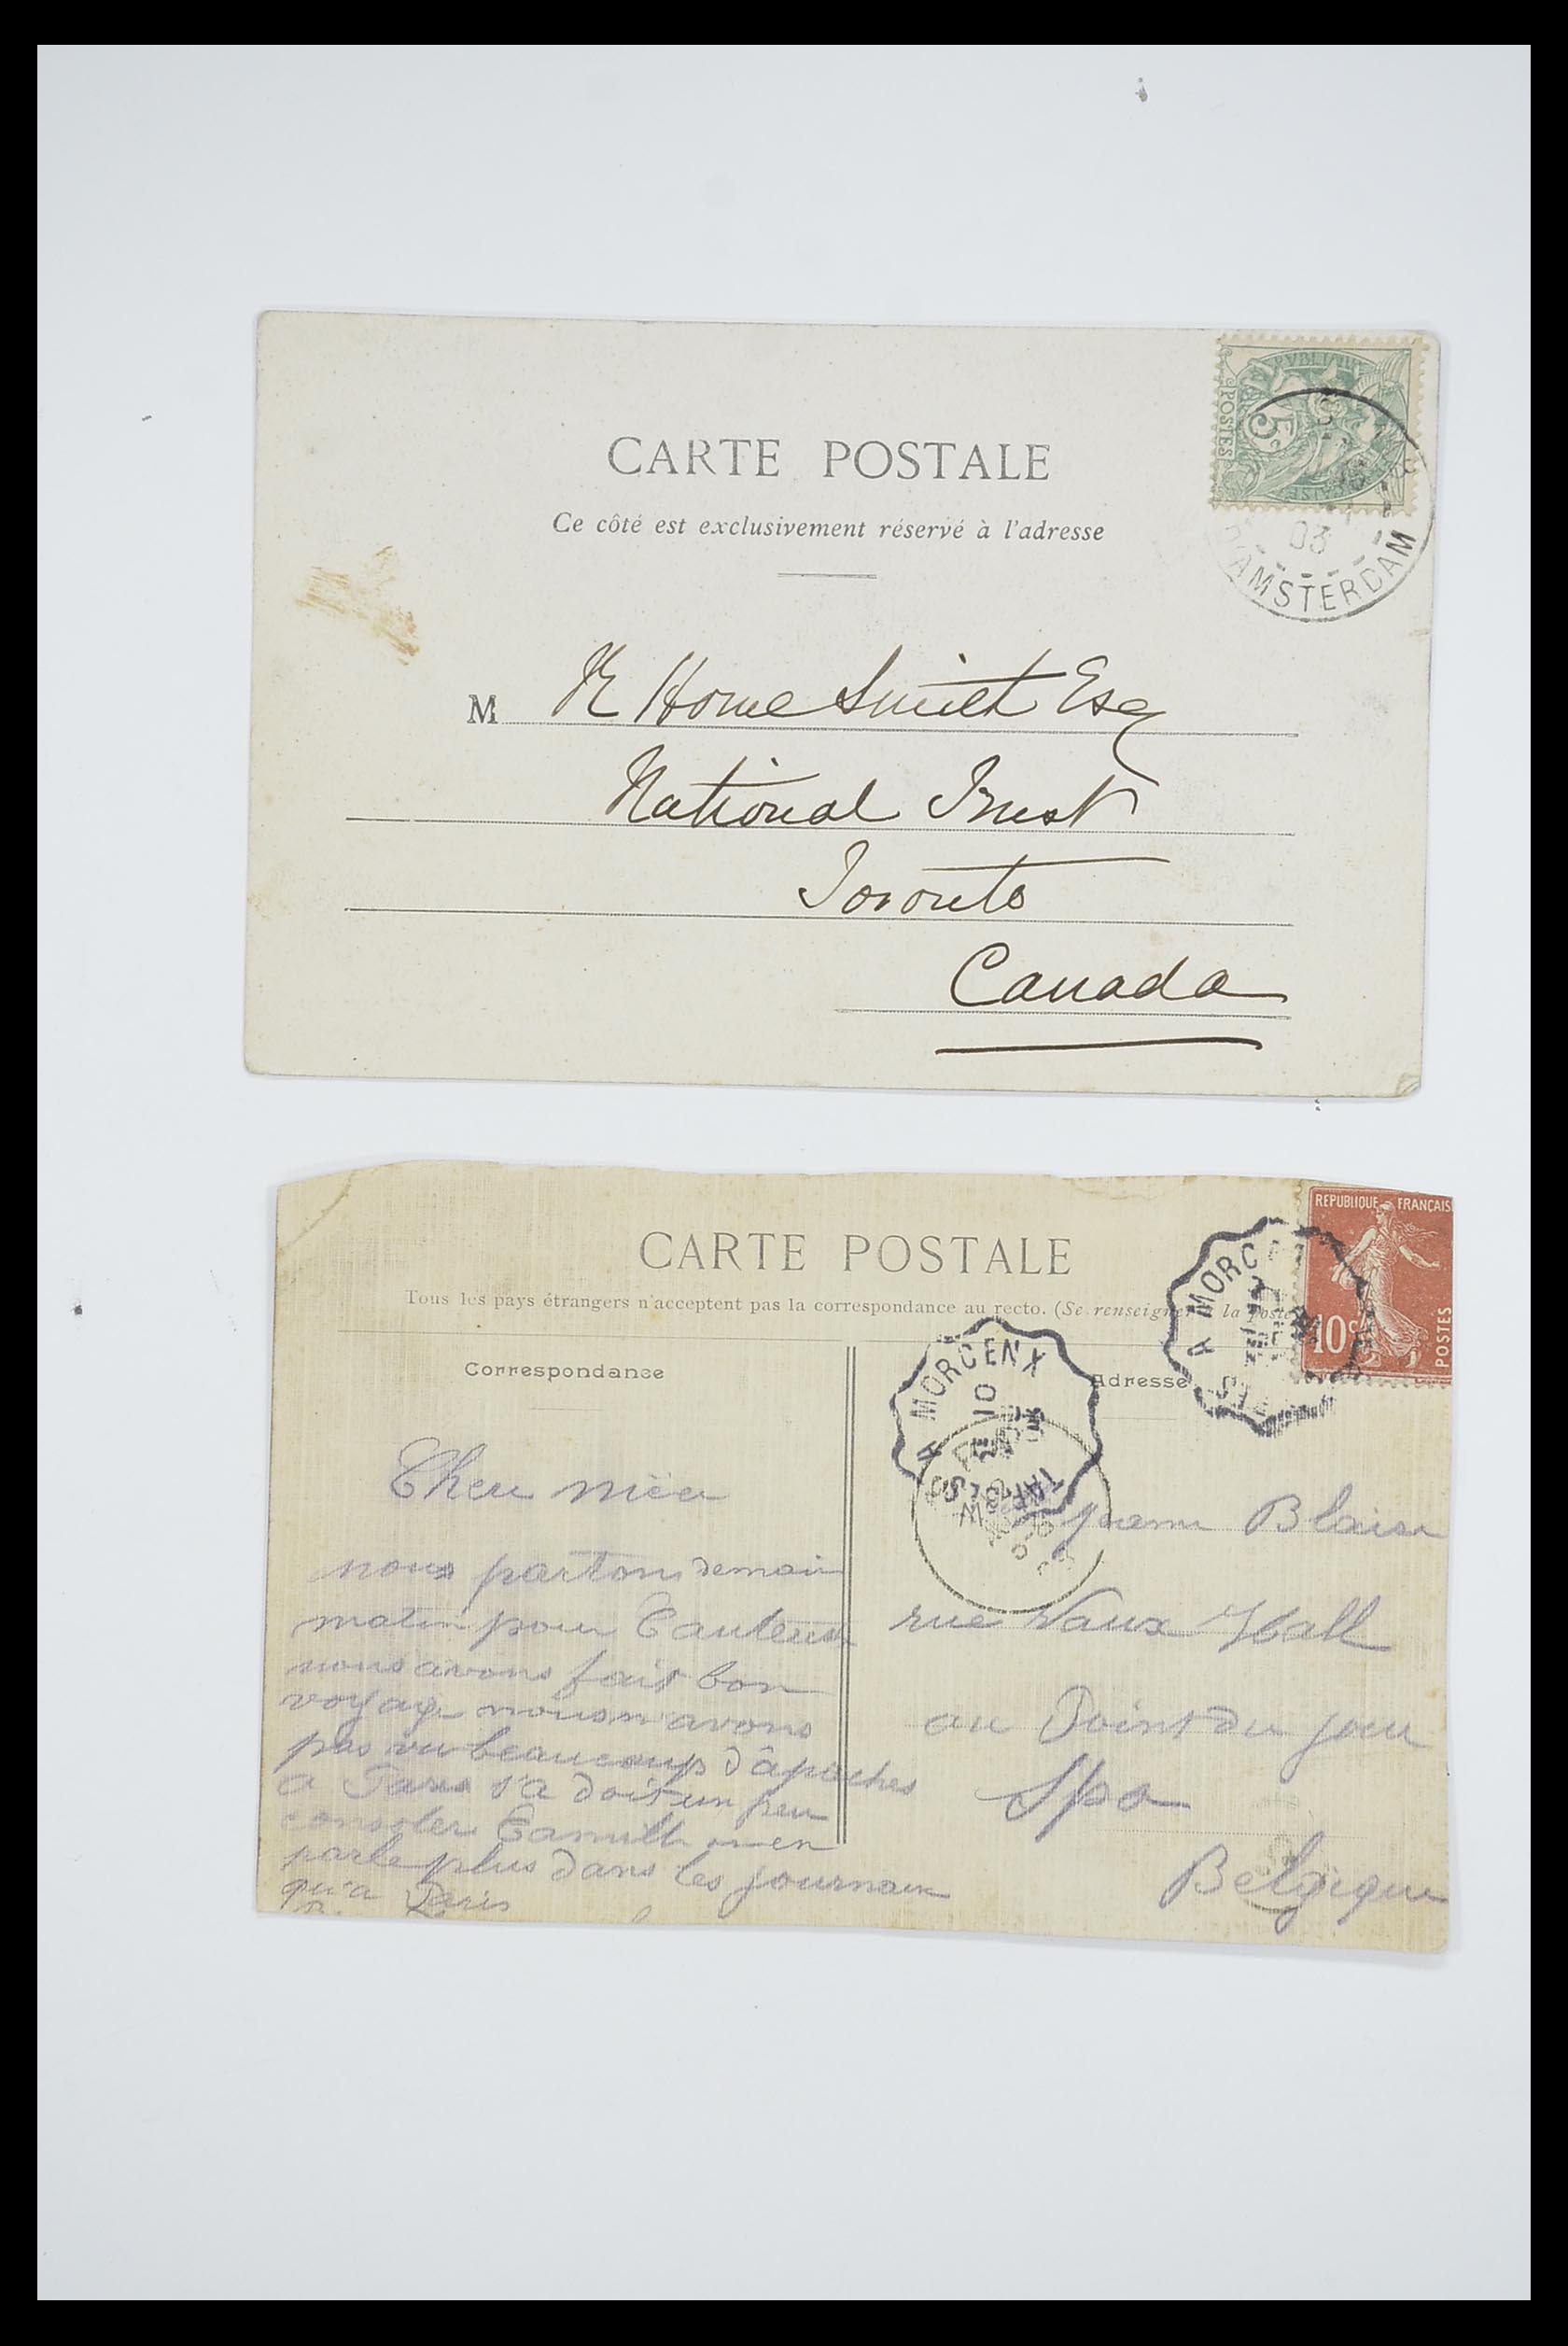 CARTE POSTALE
Ce côté est exclusivement réservé à l'adresse
POSTES
5c
03
AMSTERDAM
M R Home Smith Esq
National Trust
Toronto
Canada
REPUBLIQUE FRANÇAIS
10c
POSTES
CARTE POSTALE
Tous les pays étrangers n'acceptent pas la correspondance au recto. (Se renseigner à la poste
A MORCENX
A MORCENX
10
Correspondance
Adresse
nous partons demain
matin pour Cauterets
nous avons fait bon
voyage nous n'avons
pas vu beaucoup d'âpaches
a Paris s'a doit un peu
consoler Camille on en
parle plus dans les journaux
qu'a Paris
Blaise
rue Vaux Hall
au Point du jour
Spa
Belgique